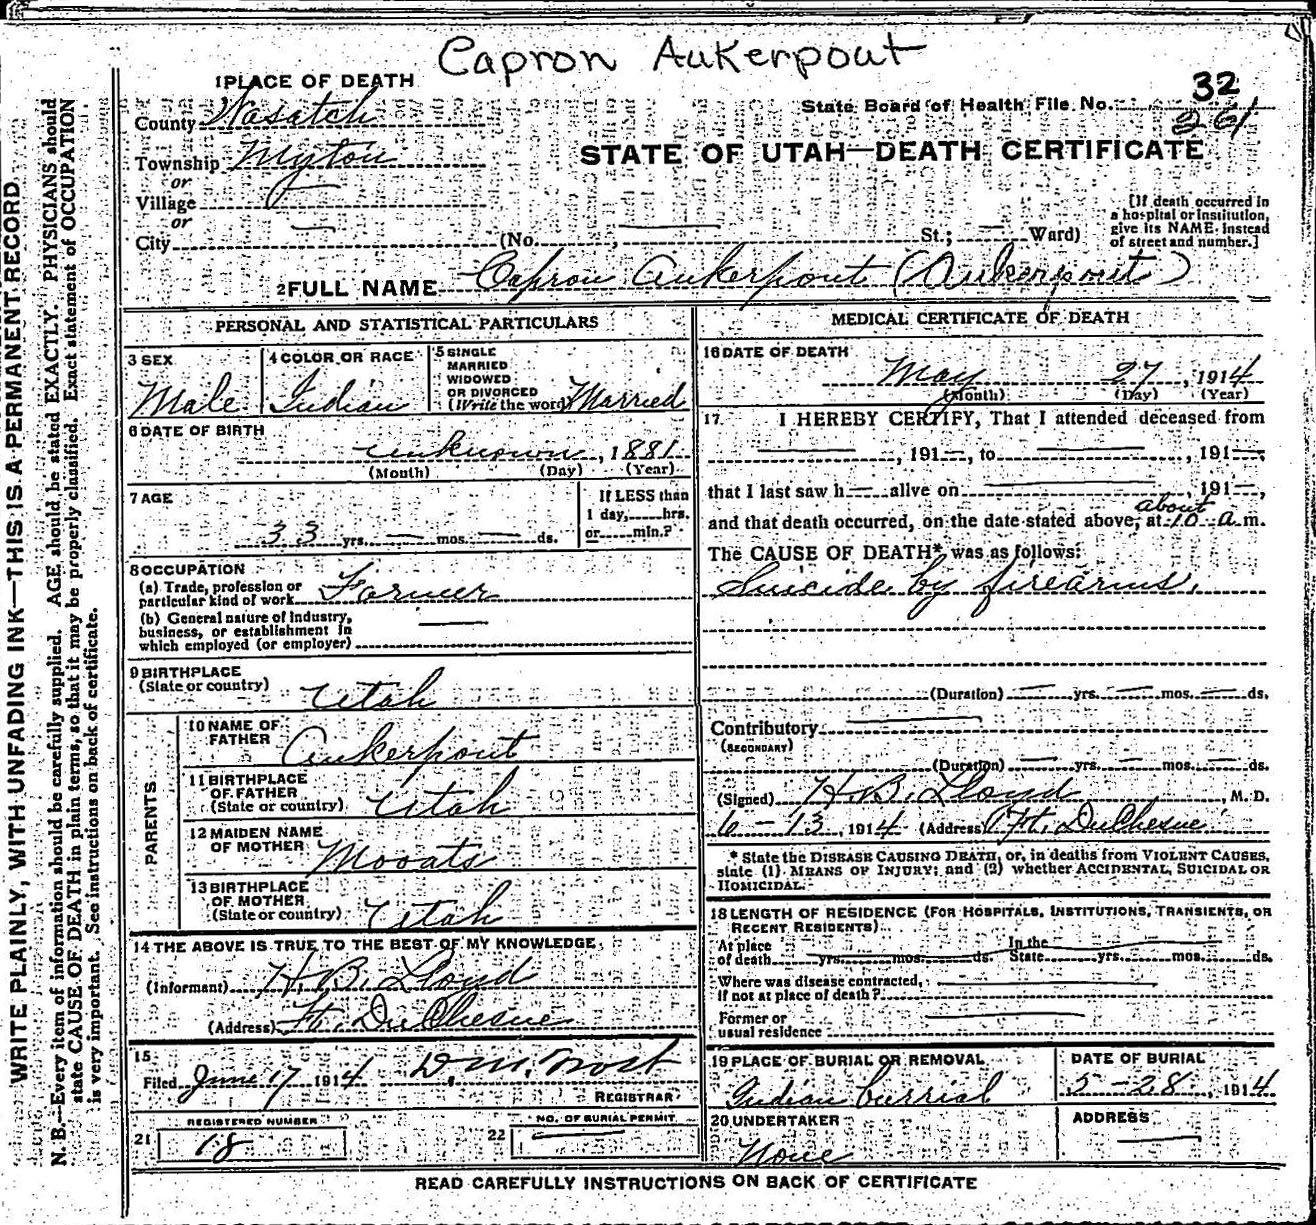 Capron Aukerpout
1 PLACE OF DEATH
County Wasatch
Township Myton
or
Village
or
City (No. , St.; Ward)
32
State Board of Health File No. 261
STATE OF UTAH—DEATH CERTIFICATE
[If death occurred in
a hospital or institution,
give its NAME, instead
of street and number.]
2 FULL NAME Capron Aukerpout (Aukerpout)
PERSONAL AND STATISTICAL PARTICULARS
3 SEX
Male
4 COLOR OR RACE
Indian
5 SINGLE
MARRIED
WIDOWED
OR DIVORCED
(Write the word) Married
6 DATE OF BIRTH
unknown, 1881
(Month) (Day) (Year)
7 AGE
33 yrs. — mos. — ds.
If LESS than
1 day, hrs.
or min.?
8 OCCUPATION
(a) Trade, profession or
particular kind of work Farmer
(b) General nature of industry,
business, or establishment in
which employed (or employer) —
9 BIRTHPLACE
(State or country) Utah
PARENTS
10 NAME OF
FATHER Aukerpout
11 BIRTHPLACE
OF FATHER
(State or country) Utah
12 MAIDEN NAME
OF MOTHER Mooats
13 BIRTHPLACE
OF MOTHER
(State or country) Utah
14 THE ABOVE IS TRUE TO THE BEST OF MY KNOWLEDGE
(Informant) H. B. Lloyd
(Address) Ft. DuChesne
15
Filed June 17 1914 D. M. Frost
REGISTRAR
REGISTERED NUMBER
21 18
NO. OF BURIAL PERMIT
22 —
MEDICAL CERTIFICATE OF DEATH
16 DATE OF DEATH
May 27, 1914
(Month) (Day) (Year)
17 I HEREBY CERTIFY, That I attended deceased from
—, 191—, to —, 191—,
that I last saw h— alive on —, 191—,
and that death occurred, on the date stated above, at about 10 a m.
The CAUSE OF DEATH* was as follows:
Suicide by firearms.
(Duration) — yrs. — mos. — ds.
Contributory —
(SECONDARY)
(Duration) — yrs. — mos. — ds.
(Signed) H. B. Lloyd, M. D.
6-13, 1914 (Address) Ft. DuChesne
* State the DISEASE CAUSING DEATH, or, in deaths from VIOLENT CAUSES,
state (1) MEANS OF INJURY; and (2) whether ACCIDENTAL, SUICIDAL OR
HOMICIDAL.
18 LENGTH OF RESIDENCE (FOR HOSPITALS, INSTITUTIONS, TRANSIENTS, OR
RECENT RESIDENTS).
At place In the
of death yrs. mos. ds. State yrs. mos. ds.
Where was disease contracted,
if not at place of death?
Former or
usual residence
19 PLACE OF BURIAL OR REMOVAL
Indian burrial
DATE OF BURIAL
5-28, 1914
20 UNDERTAKER
None
ADDRESS
—
READ CAREFULLY INSTRUCTIONS ON BACK OF CERTIFICATE
WRITE PLAINLY, WITH UNFADING INK—THIS IS A PERMANENT RECORD
N. B.—Every item of information should be carefully supplied. AGE should be stated EXACTLY. PHYSICIANS should
state CAUSE OF DEATH in plain terms, so that it may be properly classified. Exact statement of OCCUPATION
is very important. See instructions on back of certificate.